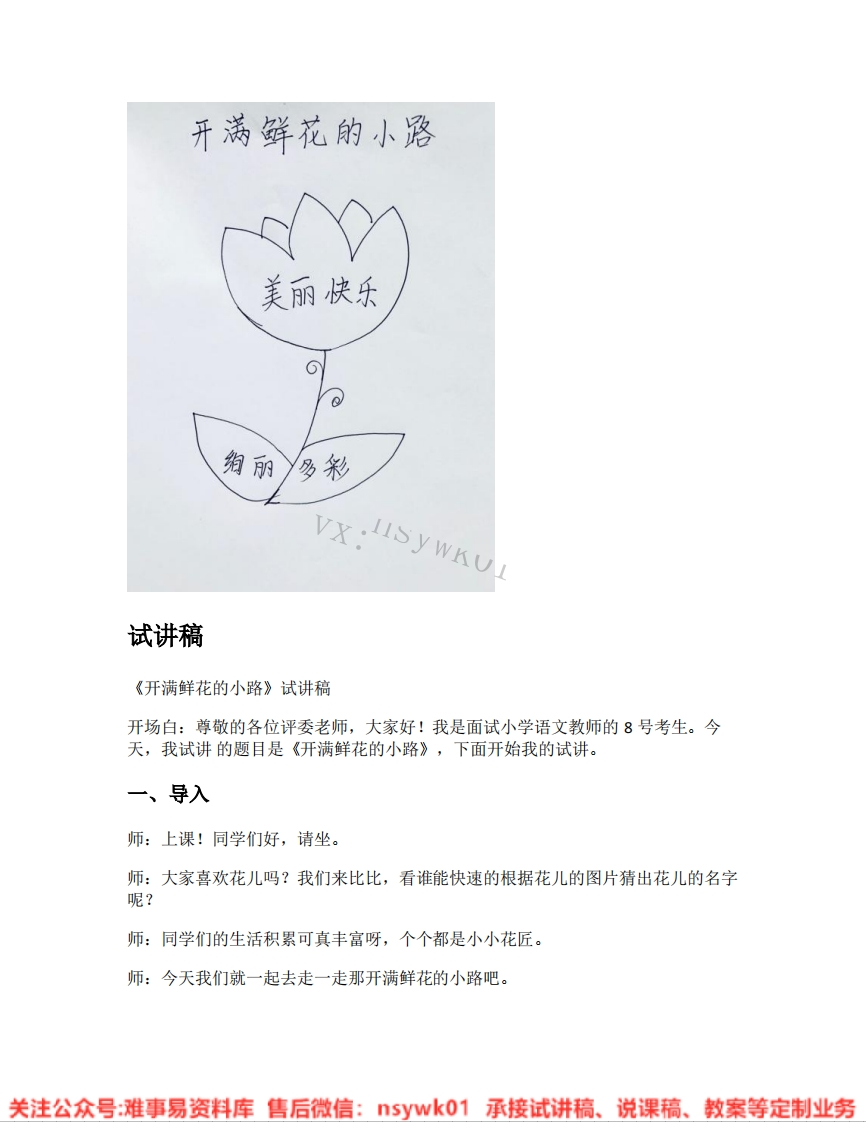 开满鲜花的小路
美丽快乐
绚丽多彩
VX:nsywk01
试讲稿
《开满鲜花的小路》试讲稿
开场白：尊敬的各位评委老师，大家好！我是面试小学语文教师的 8 号考生。今
天，我试讲 的题目是《开满鲜花的小路》，下面开始我的试讲。
一、导入
师：上课！同学们好，请坐。
师：大家喜欢花儿吗？我们来比比，看谁能快速的根据花儿的图片猜出花儿的名字
呢？
师：同学们的生活积累可真丰富呀，个个都是小小花匠。
师：今天我们就一起去走一走那开满鲜花的小路吧。
关注公众号:难事易资料库 售后微信：nsywk01 承接试讲稿、说课稿、教案等定制业务